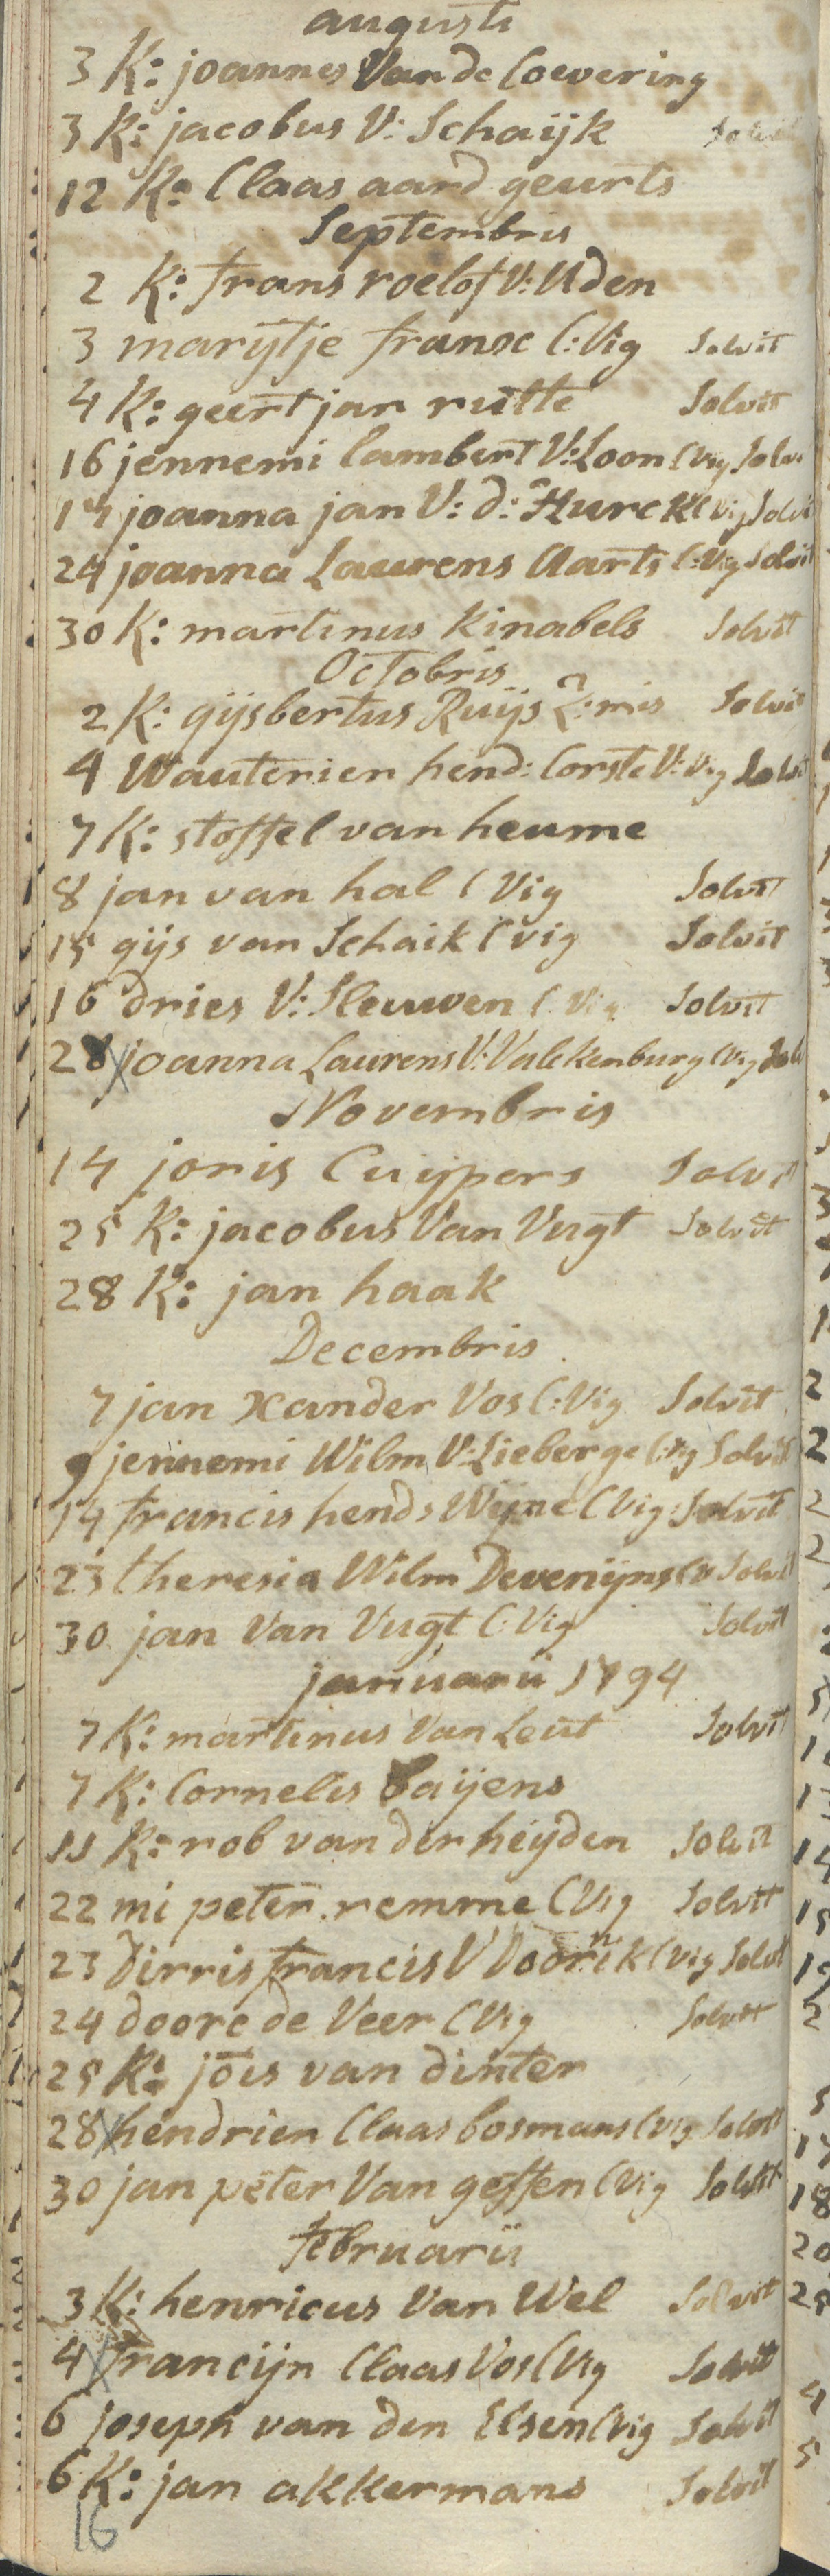 augusti
3 K: joannes Van de Coevering
3 K: jacobus V: Schaijk Solvit
12 K: Claas aard geurts
Septembris
2 K: frans roelof V: Uden
3 marijtje franse C: Vig Solvit
4 K: geert jan rutte Solvit
16 jennemi lambert V: Loon C Vig Solvi
17 joanna jan V: d: Hurck C Vig Solvi
24 joanna Laurens Aarts C: Vig Solvit
30 K: martinus Kinabels Solvit
Octobris
2 K: gijsbertus Ruijs Z: mis Solvit
4 Wauterien hend: Corste V: Vig Solvit
7 K: stoffel van heume
8 jan van hal C Vig Solvit
15 gijs van Schaik C vig Solvit
16 dries V: Sleuwen C Vig Solvit
28 joanna Laurens V: Valckenburg C Vig Solv
Novembris
14 joris Cuijpers Solvit
25 K: jacobus Van Vugt Solvit
28 K: jan haak
Decembris
7 jan Xander Vos C: Vig Solvit
9 jennemi Wilm V: Lieberge C: Vig Solvit
14 francis hends Wijne C Vig: Solvit
23 theresia Wilm Devenijns C v Solvit
30 jan Van Vugt C: Vig Solvit
januarii 1794
7 K: martinus Van Leut Solvit
7 K: Cornelis baijens
11 K: rob van der heijden Solvit
22 mi peter remme C Vig Solvit
23 Dirris francis V Doorik C Vig Solvit
24 doore de Veer C Vig Solvit
25 K: jois van dinter
28 hendrien Claas bosmans C Vig Solvit
30 jan peter Van geffen C Vig Solvit
februarii
3 K: henricus Van Wel Solvit
4 francijn Claas Vos C Vig Solvit
6 joseph van den Elsen C Vig Solvit
6 K: jan akkermans Solvit
16